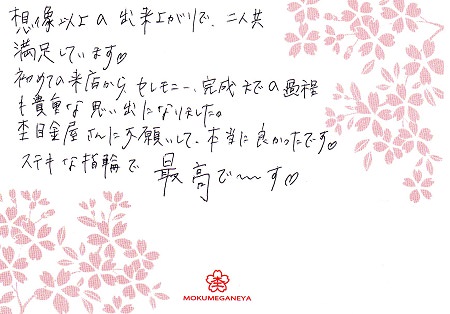 想像以上の出来上がりで、二人共
満足しています♡
初めての来店から、セレモニー、完成までの過程
も貴重な思い出になりました。
杢目金屋さんにお願いして、本当に良かったです♡
ステキな指輪で 最高で〜す♡
MOKUMEGANEYA